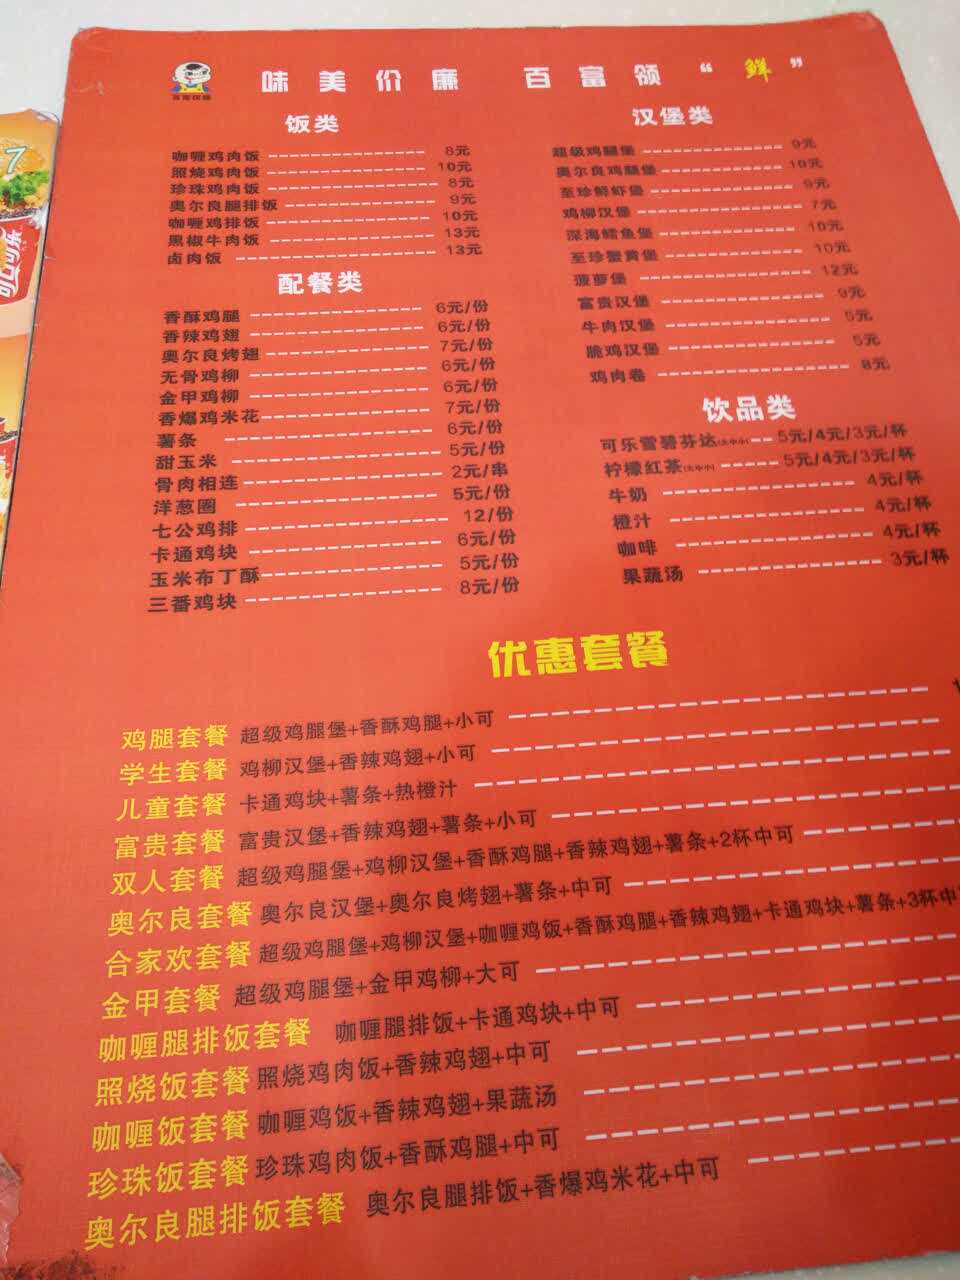 味美价廉 百富领“鲜”
饭类
咖喱鸡肉饭 8元
照烧鸡肉饭 10元
珍珠鸡肉饭 8元
奥尔良腿排饭 9元
咖喱鸡排饭 10元
黑椒牛肉饭 13元
卤肉饭 13元
配餐类
香酥鸡腿 6元/份
香辣鸡翅 6元/份
奥尔良烤翅 7元/份
无骨鸡柳 6元/份
金甲鸡柳 6元/份
香爆鸡米花 7元/份
薯条 6元/份
甜玉米 5元/份
骨肉相连 2元/串
洋葱圈 5元/份
七公鸡排 12/份
卡通鸡块 6元/份
玉米布丁酥 5元/份
三番鸡块 8元/份
汉堡类
超级鸡腿堡 9元
奥尔良鸡腿堡 10元
至珍鲜虾堡 9元
鸡柳汉堡 7元
深海鳕鱼堡 10元
至珍蟹黄堡 10元
菠萝堡 12元
富贵汉堡 9元
牛肉汉堡 5元
脆鸡汉堡 5元
鸡肉卷 8元
饮品类
可乐雪碧芬达(大中小) 5元/4元/3元/杯
柠檬红茶(大中小) 5元/4元/3元/杯
牛奶 4元/杯
橙汁 4元/杯
咖啡 4元/杯
果蔬汤 3元/杯
优惠套餐
鸡腿套餐 超级鸡腿堡+香酥鸡腿+小可
学生套餐 鸡柳汉堡+香辣鸡翅+小可
儿童套餐 卡通鸡块+薯条+热橙汁
富贵套餐 富贵汉堡+香辣鸡翅+薯条+小可
双人套餐 超级鸡腿堡+鸡柳汉堡+香酥鸡腿+香辣鸡翅+薯条+2杯中可
奥尔良套餐 奥尔良汉堡+奥尔良烤翅+薯条+中可
合家欢套餐 超级鸡腿堡+鸡柳汉堡+咖喱鸡饭+香酥鸡腿+香辣鸡翅+卡通鸡块+薯条+3杯中
金甲套餐 超级鸡腿堡+金甲鸡柳+大可
咖喱腿排饭套餐 咖喱腿排饭+卡通鸡块+中可
照烧饭套餐 照烧鸡肉饭+香辣鸡翅+中可
咖喱饭套餐 咖喱鸡饭+香辣鸡翅+果蔬汤
珍珠饭套餐 珍珠鸡肉饭+香酥鸡腿+中可
奥尔良腿排饭套餐 奥尔良腿排饭+香爆鸡米花+中可
7